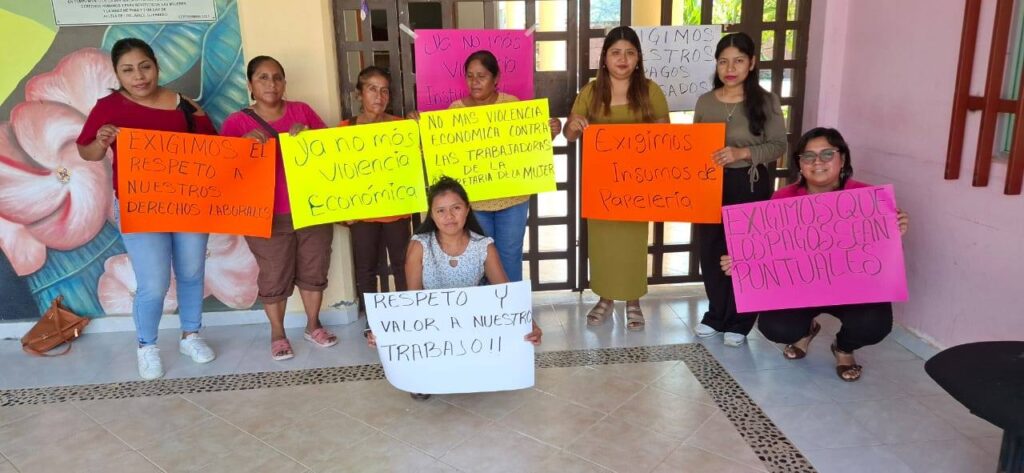 EN TODO MOMENTO
DERECHOS HUMANOS
SEPTIEMBRE
Ya no más
EXIGIMOS
NUESTROS
PAGOS
EXIGIMOS EL
RESPETO A
NUESTROS
DERECHOS LABORALES
Ya no
VIOLENCIA
Económica
NO MAS VIOLENCIA
ECONOMICA CONTRA
LAS TRABAJADORAS
DE LA
SECRETARIA DE LA MUJER
Exigimos
Insumos de
Papelería
EXIGIMOS QUE
LOS PAGOS SEAN
PUNTUALES
RESPETO Y
VALOR A NUESTRO
TRABAJO!!